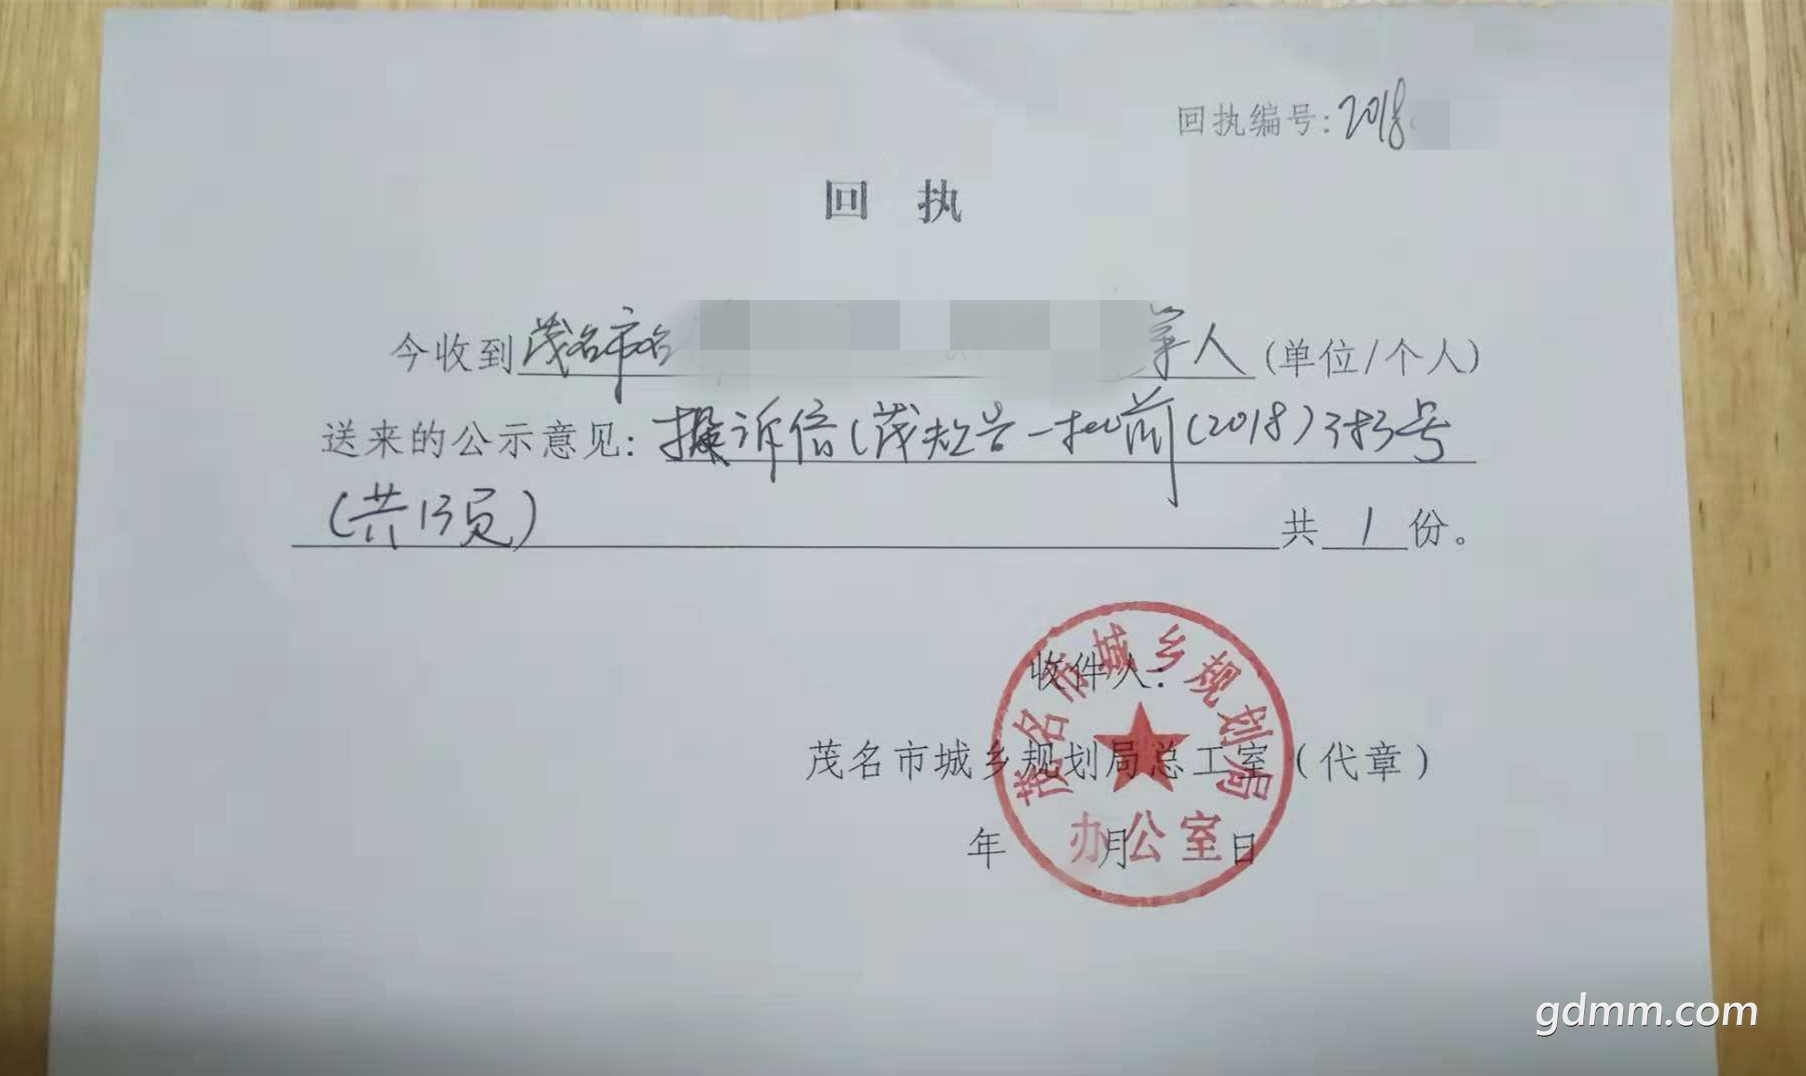 回执编号：2018
回执
今收到茂名市名 等人（单位/个人）
送来的公示意见：投诉信（茂规告-批前（2018）383号
（共13页） 共1份。
收件人：
茂名市城乡规划局总工室（代章）
年 月 日
茂名市城乡规划局
办公室
gdmm.com